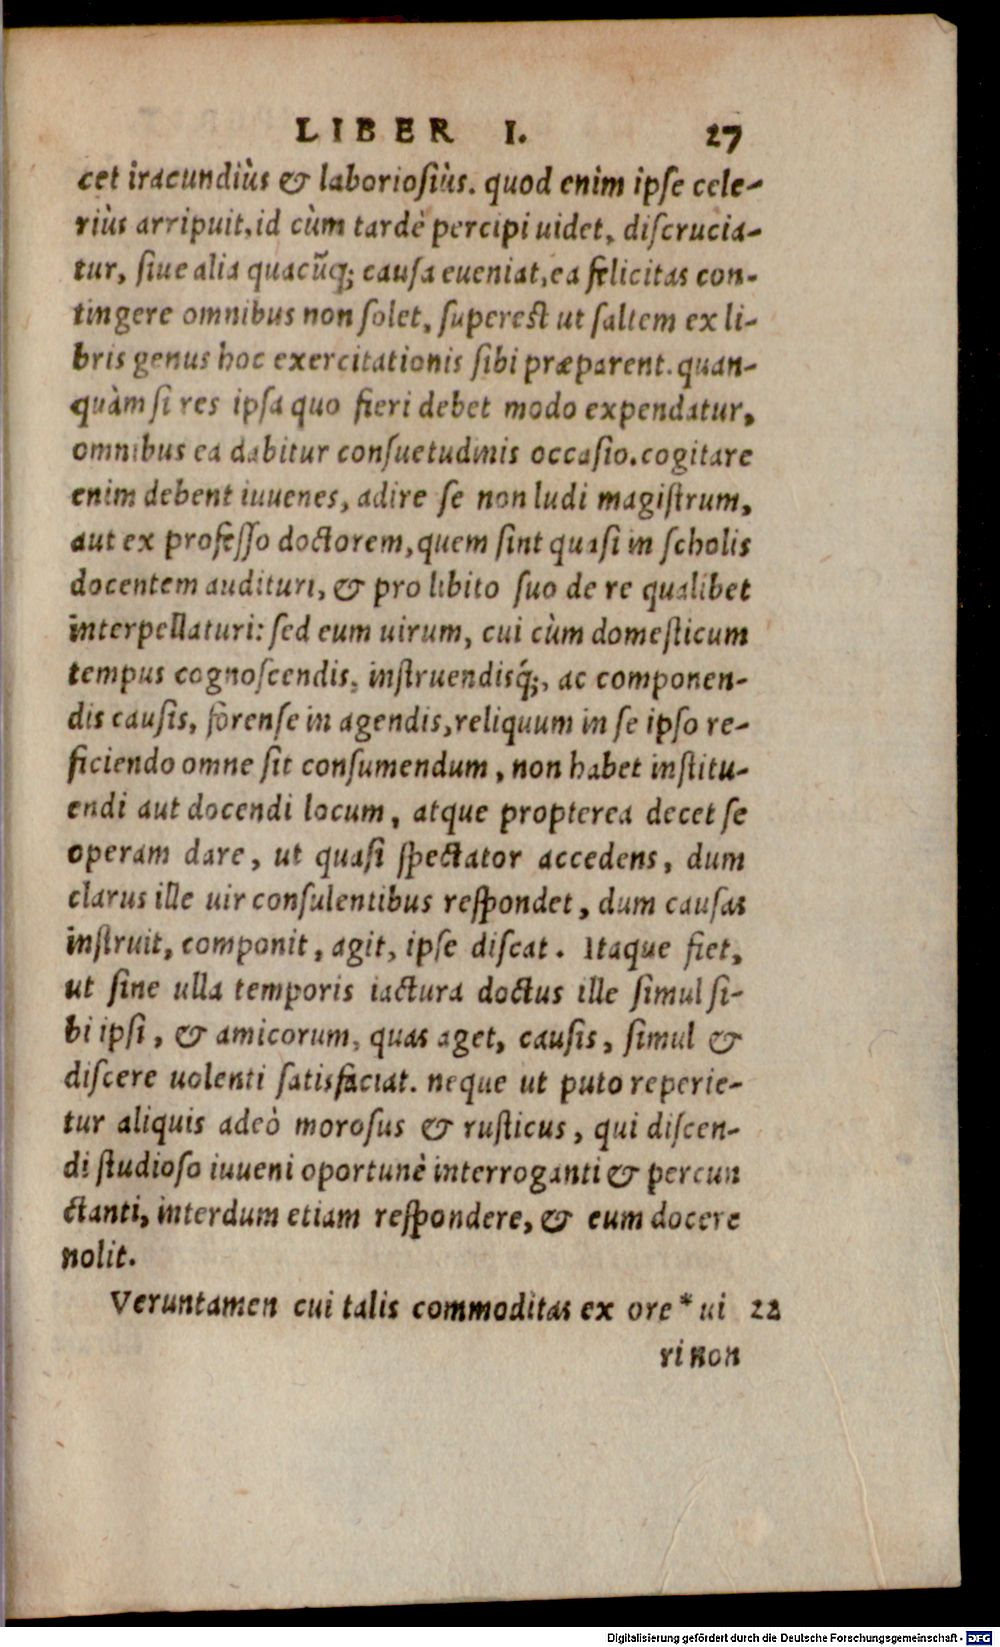 LIBER I. 27
cet iracundiùs & laboriosiùs. quod enim ipse cele-
riùs arripuit, id cùm tardè percipi uidet, discrucia-
tur, siue alia quacũq; causa eueniat, ea felicitas con-
tingere omnibus non solet, superest ut saltem ex li-
bris genus hoc exercitationis sibi præparent. quan-
quàm si res ipsa quo fieri debet modo expendatur,
omnibus ea dabitur consuetudinis occasio. cogitare
enim debent iuuenes, adire se non ludi magistrum,
aut ex professo doctorem, quem sint quasi in scholis
docentem audituri, & pro libito suo de re qualibet
interpellaturi: sed eum uirum, cui cùm domesticum
tempus cognoscendis, instruendisq́;, ac componen-
dis causis, forense in agendis, reliquum in se ipso re-
ficiendo omne sit consumendum, non habet institu-
endi aut docendi locum, atque propterea decet se
operam dare, ut quasi spectator accedens, dum
clarus ille uir consulentibus respondet, dum causas
instruit, componit, agit, ipse discat. Itaque fiet,
ut sine ulla temporis iactura doctus ille simul si-
bi ipsi, & amicorum, quas aget, causis, simul &
discere uolenti satisfaciat. neque ut puto reperie-
tur aliquis adeò morosus & rusticus, qui discen-
di studioso iuueni oportunè interroganti & percun
ctanti, interdum etiam respondere, & eum docere
nolit.
Veruntamen cui talis commoditas ex ore * ui 22
ri non
Digitalisierung gefördert durch die Deutsche Forschungsgemeinschaft - DFG